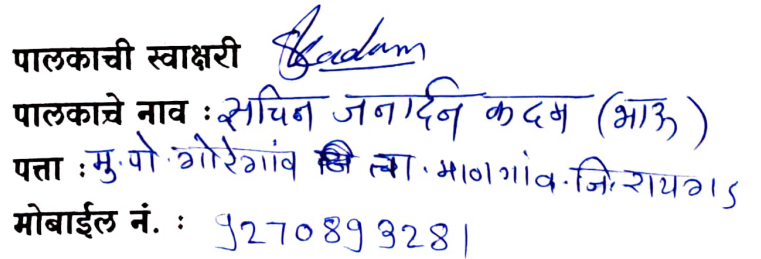 पालकाची स्वाक्षरी Skadam
पालकाचे नाव : सचिन जनार्दन कदम (भाऊ)
पत्ता : मु.पो.गोरेगांव ता.माणगांव.जि.रायगड
मोबाईल नं. : 9270893281